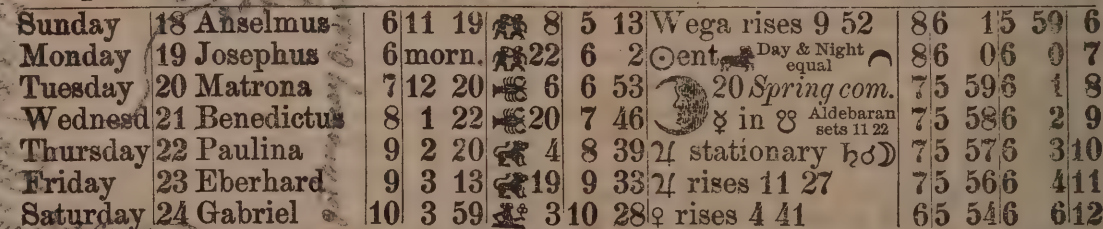 Sunday 18 Anselmus 6 11 19 8 5 13 Wega rises 9 52 8 6 1 5 59 6
Monday 19 Josephus 6 morn. 22 6 2 ☉ent. Day & Night equal 8 6 0 6 0 7
Tuesday 20 Matrona 7 12 20 6 6 53 20 Spring com. 7 5 59 6 1 8
Wednesd 21 Benedictus 8 1 22 20 7 46 ☿ in ☋ Aldebaran sets 11 22 7 5 58 6 2 9
Thursday 22 Paulina 9 2 20 4 8 39 ♃ stationary ♄☌☽ 7 5 57 6 3 10
Friday 23 Eberhard 9 3 13 19 9 33 ♃ rises 11 27 7 5 56 6 4 11
Saturday 24 Gabriel 10 3 59 3 10 28 ♀ rises 4 41 6 5 54 6 6 12